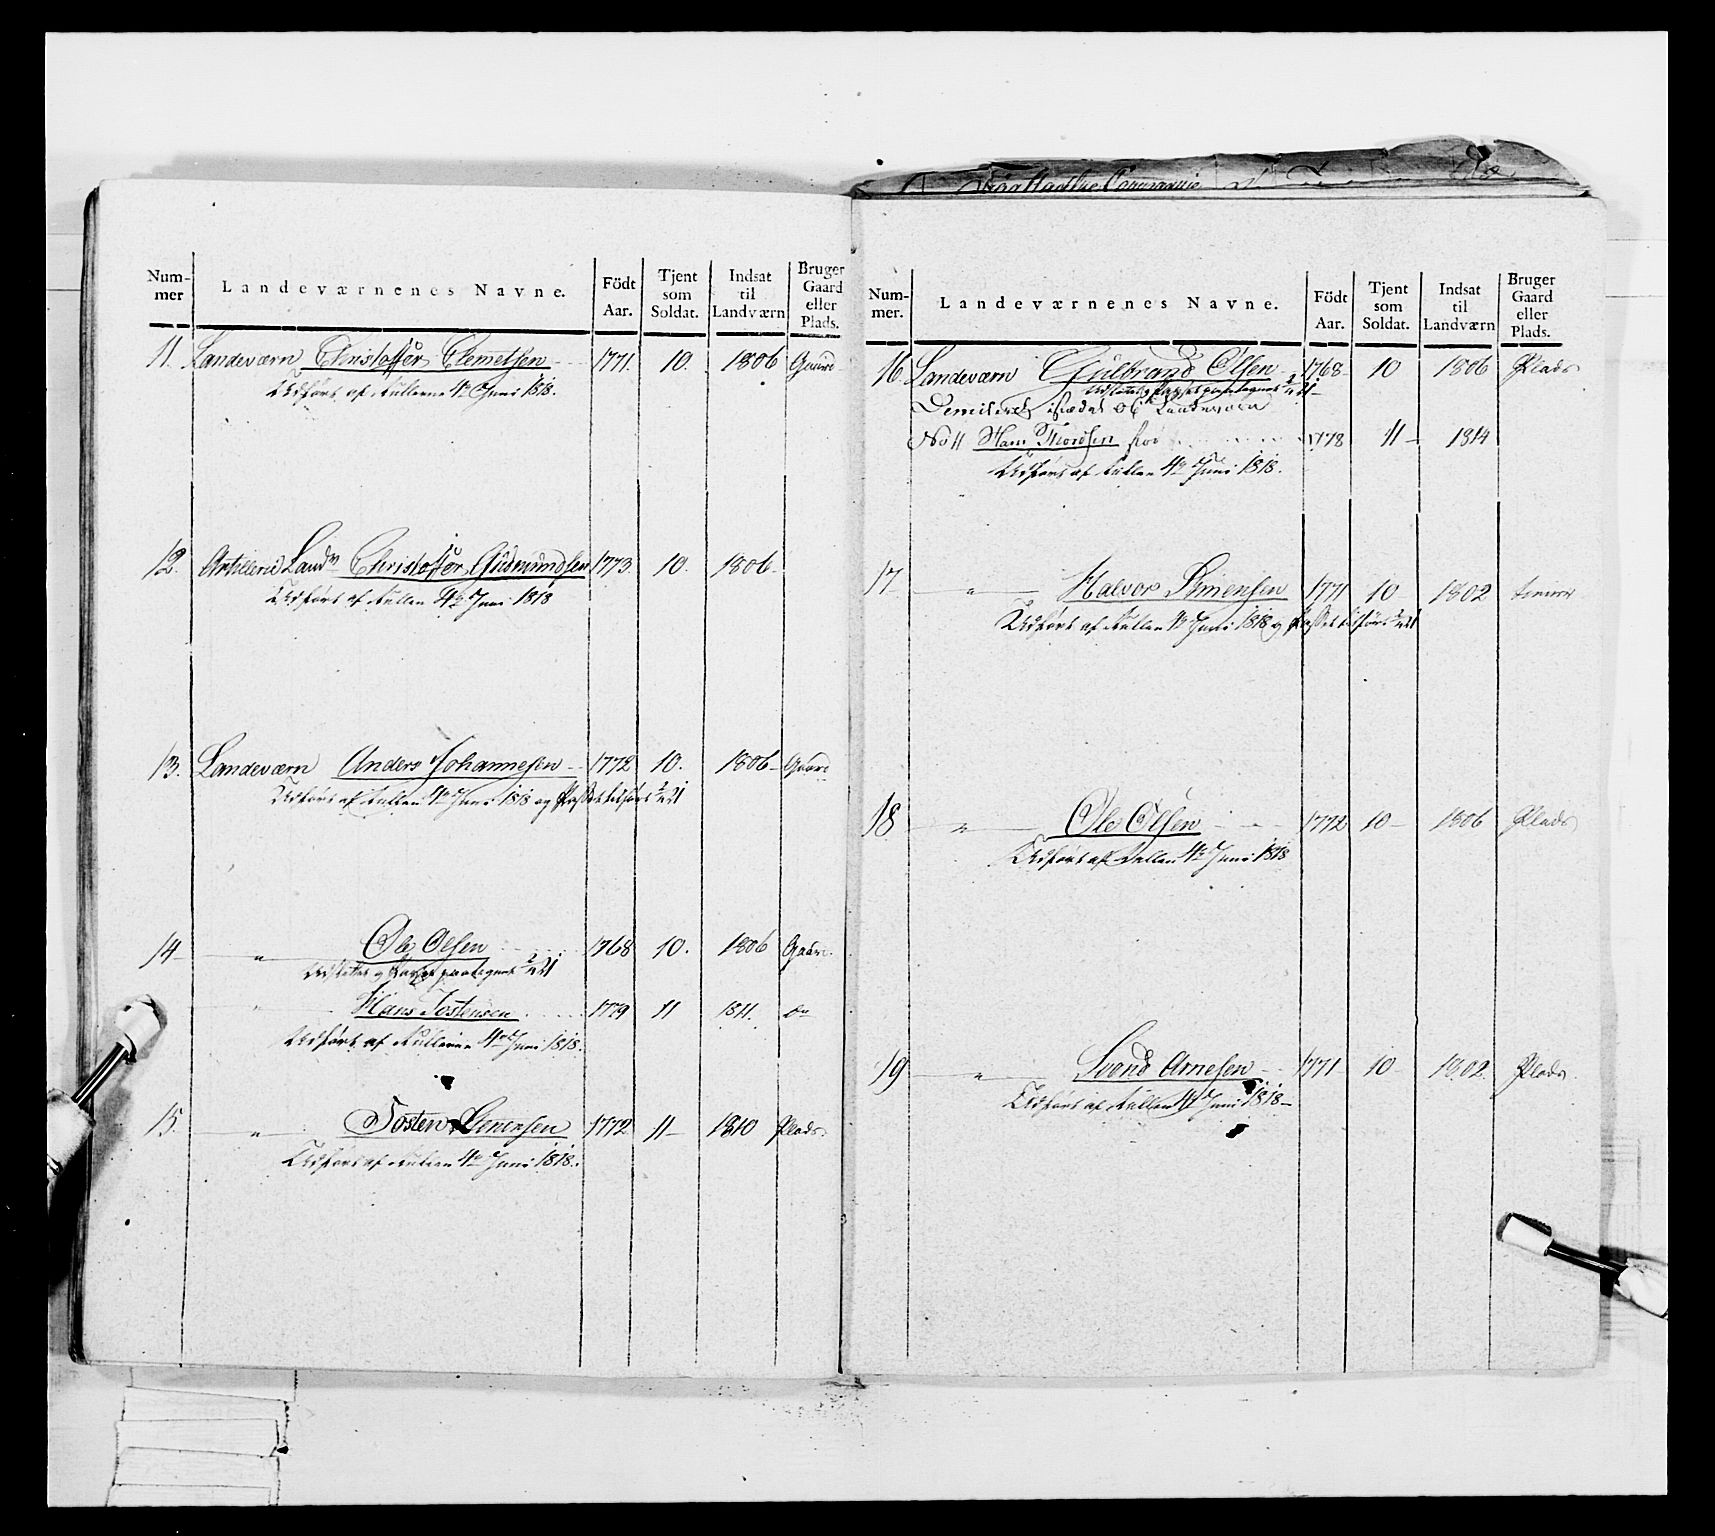 Num-
mer
Landeværnenes Navne.
Födt
Aar.
Tjent
som
Soldat.
Indsat
til
Landværn
Bruger
Gaard
eller
Plads.
11. Landeværn Christoffer Clemetsen 1771. 10. 1806 Gaard
Udført af Rullerne 4de Juni 1818.
12. Artillerie Landv Christoffer Gudmundsen 1773. 10. 1806
Udført af Rullen 4de Juni 1818
13. Landeværn Anders Johannesen 1772 10. 1806 Gaard
Udført af Rullen 4de Juni 1818 og Passet
14 " Ole Olsen 1768 10. 1806 Gaard
og Passet paategnet
" Hans Jostensen 1779 11 1811. do
Udført af Rullerne 4de Juni 1818.
15. " Josten 1772 11 1810 Plads.
Udført af Rullen 4de Juni 1818.
Num-
mer.
Landeværnenes Navne.
Födt
Aar.
Tjent
som
Soldat.
Indsat
til
Landværn
Bruger
Gaard
eller
Plads.
16 Landeværn Gulbrand Olsen 1768 10 1806 Plads
Passet paategnet
No 11 Hans 1778 11 1814
Udført af Rullen 4de Juni 1818.
17 " Halvor Simensen 1771 10 1802
Udført af Rullen 4de Juni 1818 og Passet
18 " Ole Olsen 1772 10 1806 Plads
Udført af Rullen 4de Juni 1818
19 " Svend Arnesen 1771 10 1802. Plads.
Udført af Rullen 4de Juni 1818